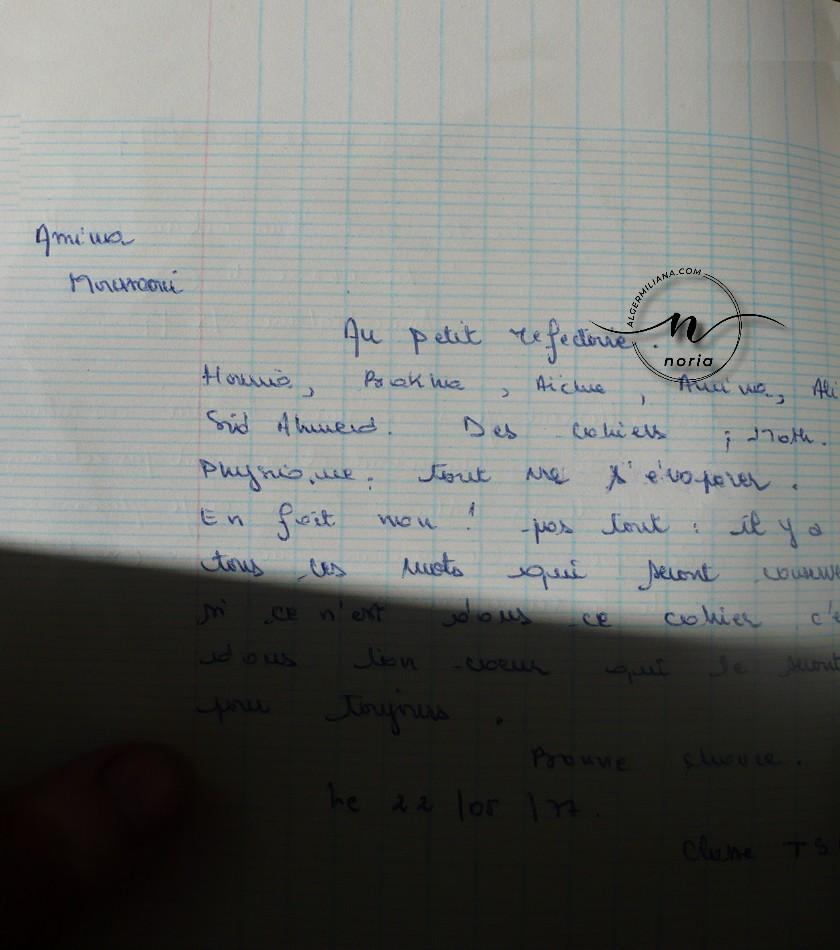 Amina
Au petit refectoire.
Aicha, Amina, Ali
Sid Ahmed. Des cahiers ; Math.
tout va s'évaporer.
En fait non ! pas tout : il y a
tous ces mots qui seront
si ce n'est dans ce cahier c'e
dans ton coeur qui le seront
pour toujours.
Bonne chance.
Le 22/05/77.
Classe TS
ALGERMILIANA.COM
n
noria